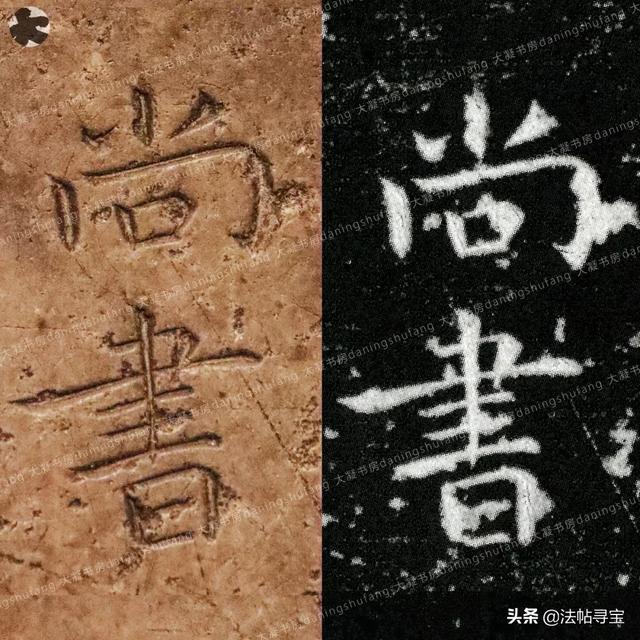 尚書
尚書
大寧书房daningshufang
头条 @法帖寻宝